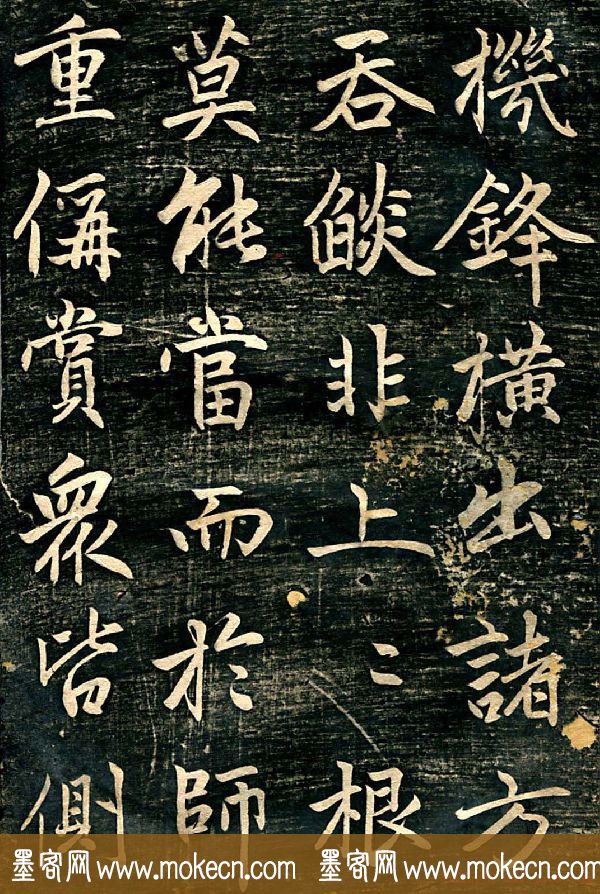 機鋒橫出諸方
吞燄非上〻根
莫能當而於師
重偁賞衆皆側
墨客网 www.mokecn.com 墨客网 www.mokecn.com